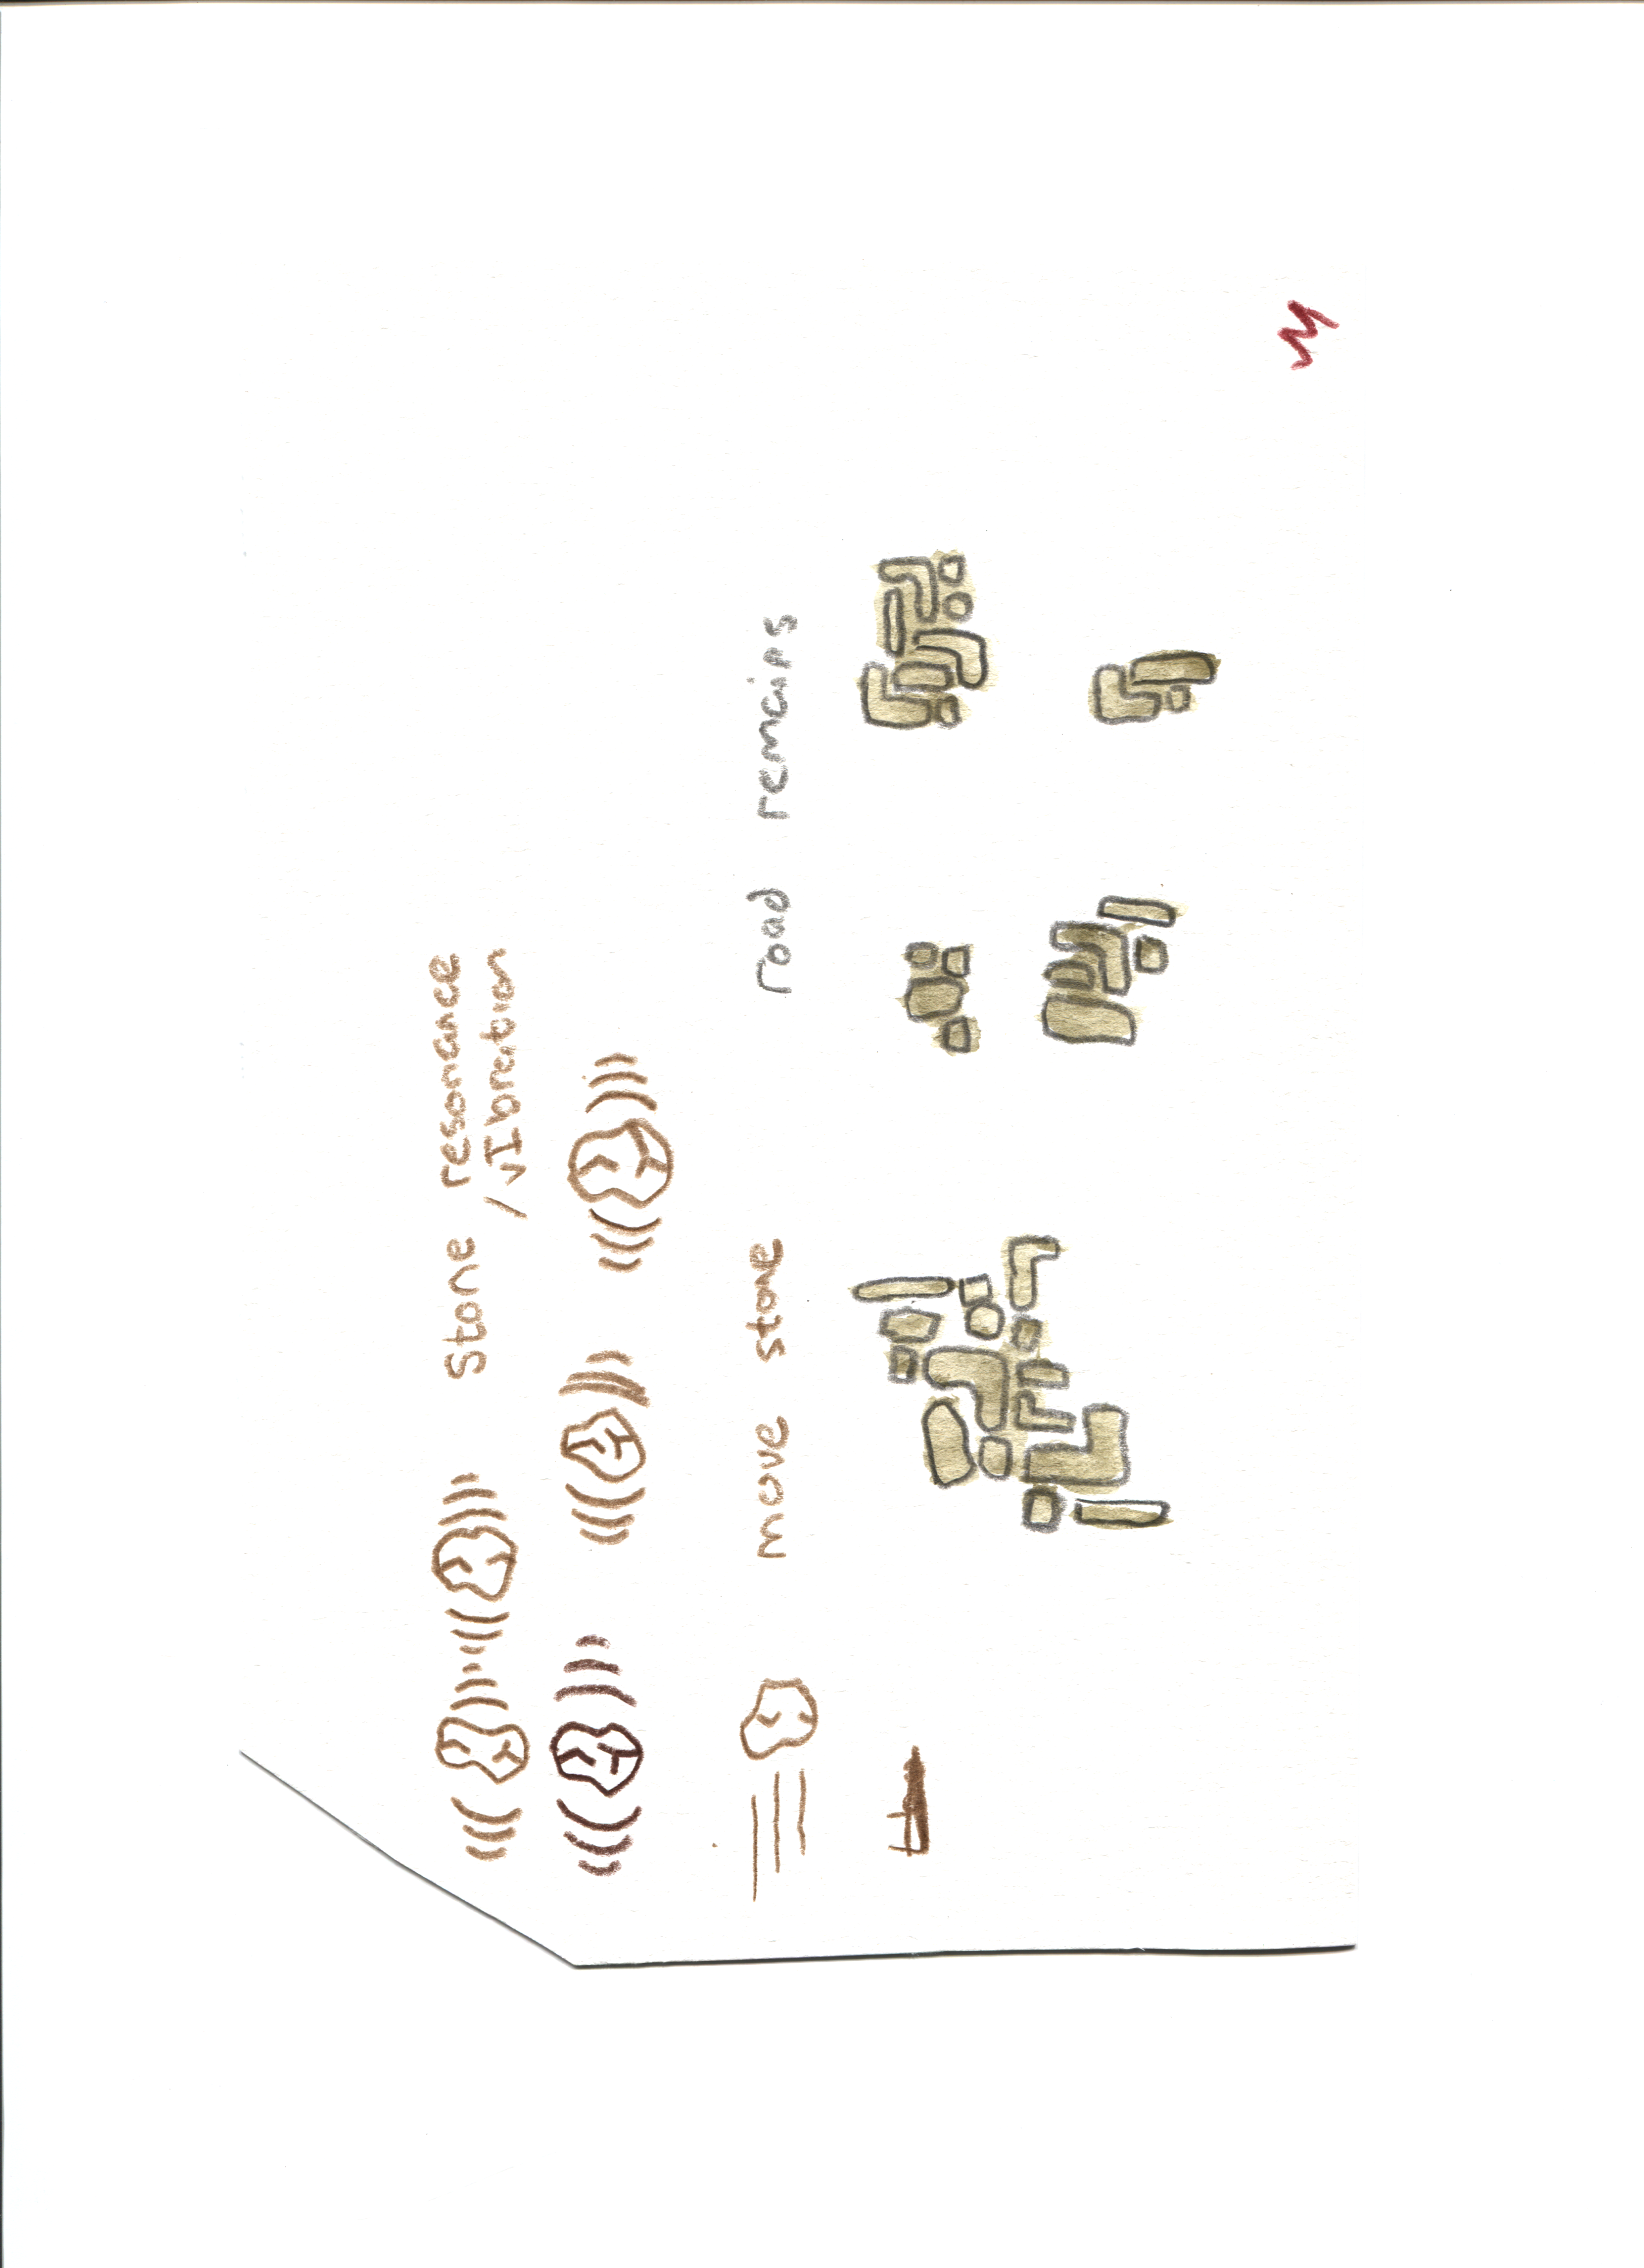 Stone resonance
/vIbration
move stone
road remains
M